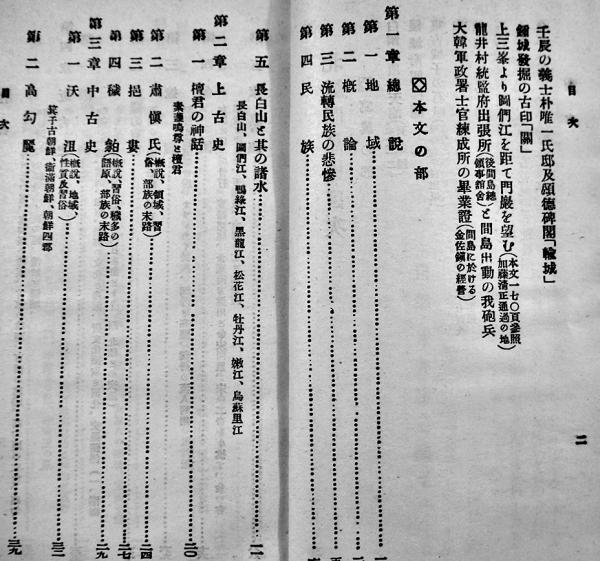 目次
二
壬辰の義士朴唯一氏邸及頌德碑閣「輸城」
鍾城發掘の古印「關」
上三峯より圖們江を距て門巖を望む(本文一七〇頁參照 加藤淸正通過の地)
龍井村統監府出張所(後間島總領事館舍)と間島出動の我砲兵
大韓軍政署士官練成所の畢業證(間島に於ける金佐鎭の經營)
◇本文の部
第一章 總說
第一 地域 一
第二 槪論 一
第三 流轉民族の悲慘 五
第四 民族
第五 長白山と其の諸水 一一
長白山、圖們江、鴨綠江、黑龍江、松花江、牡丹江、嫩江、烏蘇里江
第二章 上古史
第一 檀君の神話 二〇
素盞嗚尊と檀君
第二 肅愼氏(槪說、領域、習俗、部族の末路) 二四
第三 挹婁 二七
第四 穢貊(槪說、習俗、穢多の語原、部族の末路) 二九
第三章 中古史
第一 沃沮(槪說、地域、性質及習俗) 三二
箕子古朝鮮、衞滿朝鮮、朝鮮四郡
第二 高勾麗 三九
目次